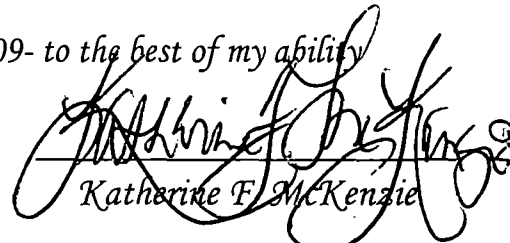 09- to the best of my ability
Katherine F. McKenzie
Katherine F. McKenzie